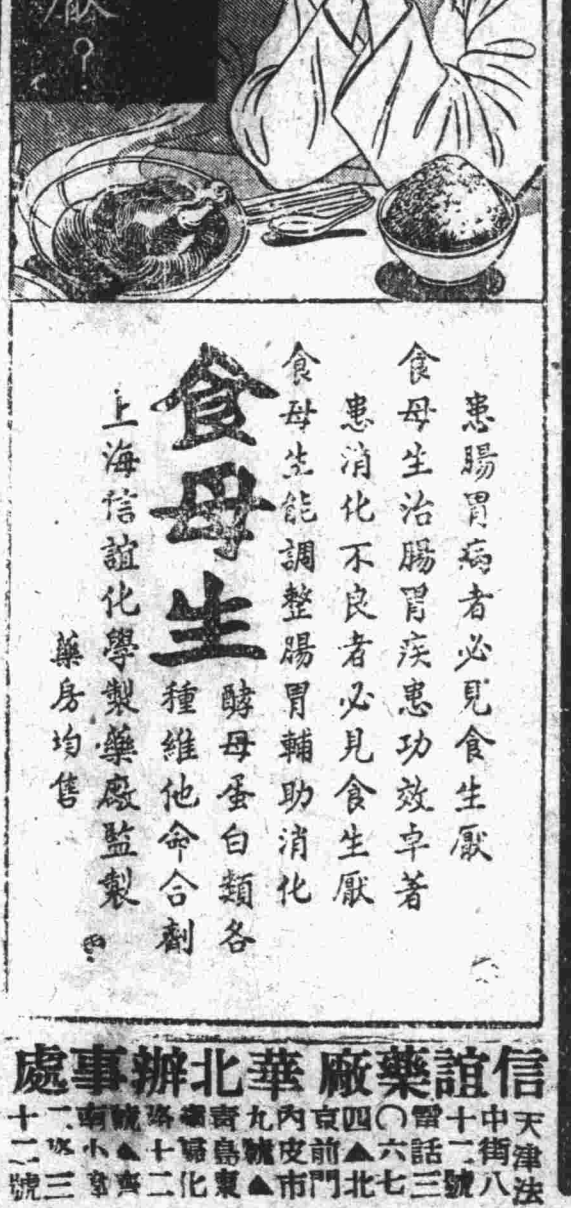 厭？
患腸胃病者必見食生厭
食母生治腸胃疾患功效卓著
患消化不良者必見食生厭
食母生能調整腸胃輔助消化
食母生
酵母蛋白類各
種維他命合劑
上海信誼化學製藥廠監製
藥房均售
信誼藥廠華北辦事處
天津法
中街八
十二號
電話三
〇六七
四▲北
京前門
內皮市
九號▲
青島東
歸化
路十二
號▲濟
南小
二路三
十二號